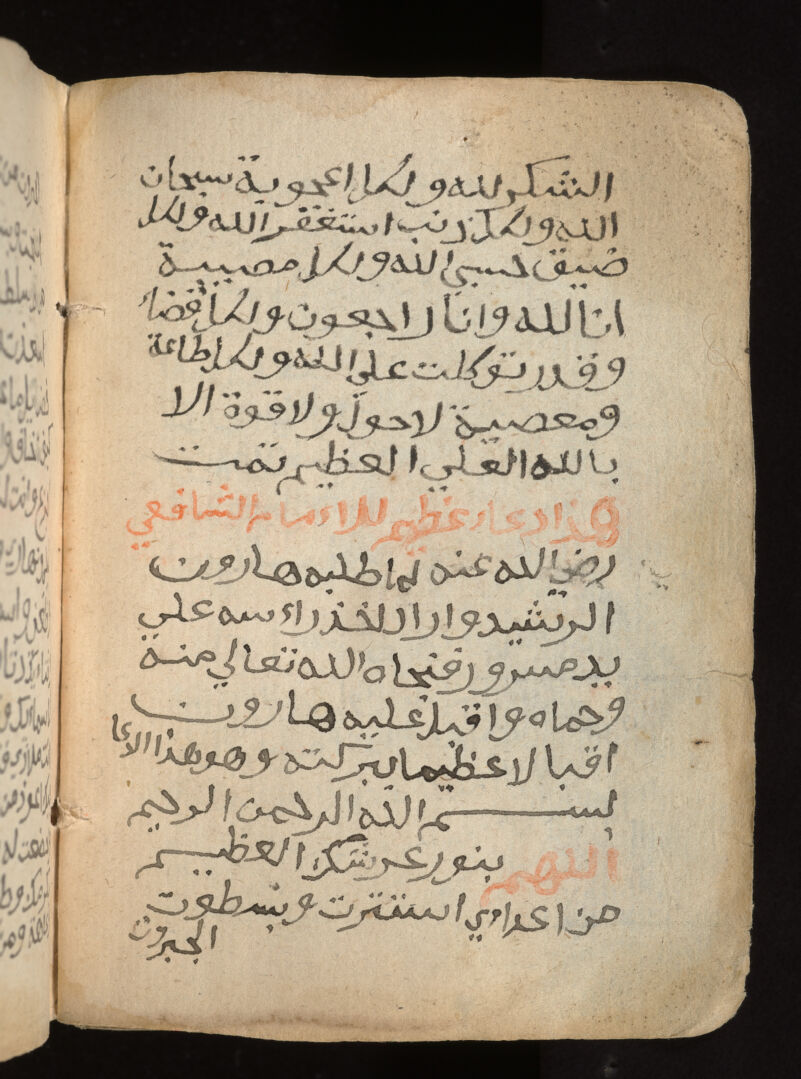 الشكر لله ولكل اعجوبة سبحان
الله ولكل ذنب استغفر الله ولكل
ضيق حسبي الله ولكل مصيبة
انا لله وانا راجعون ولكل قضاء
وقدر توكلت علي الله ولكل طاعة
ومعصية لاحول ولا قوة الا
بالله العلي العظيم تمت
هذا دعاء عظيم للاءمام الشافعي
رضي الله عنه لما طلبه هارون
الرشيد واراد اخذ راءسه علي
يد مسرور فنجاه الله تعالي منه
وحماه واقبل عليه هارون
اقبالا عظيما ببركته وهو هذا الدعا
بسم الله الرحمن الرحيم
اللهم بنور عرشك العظيم
من اعداءي استترت وبسطوت
الجبروت